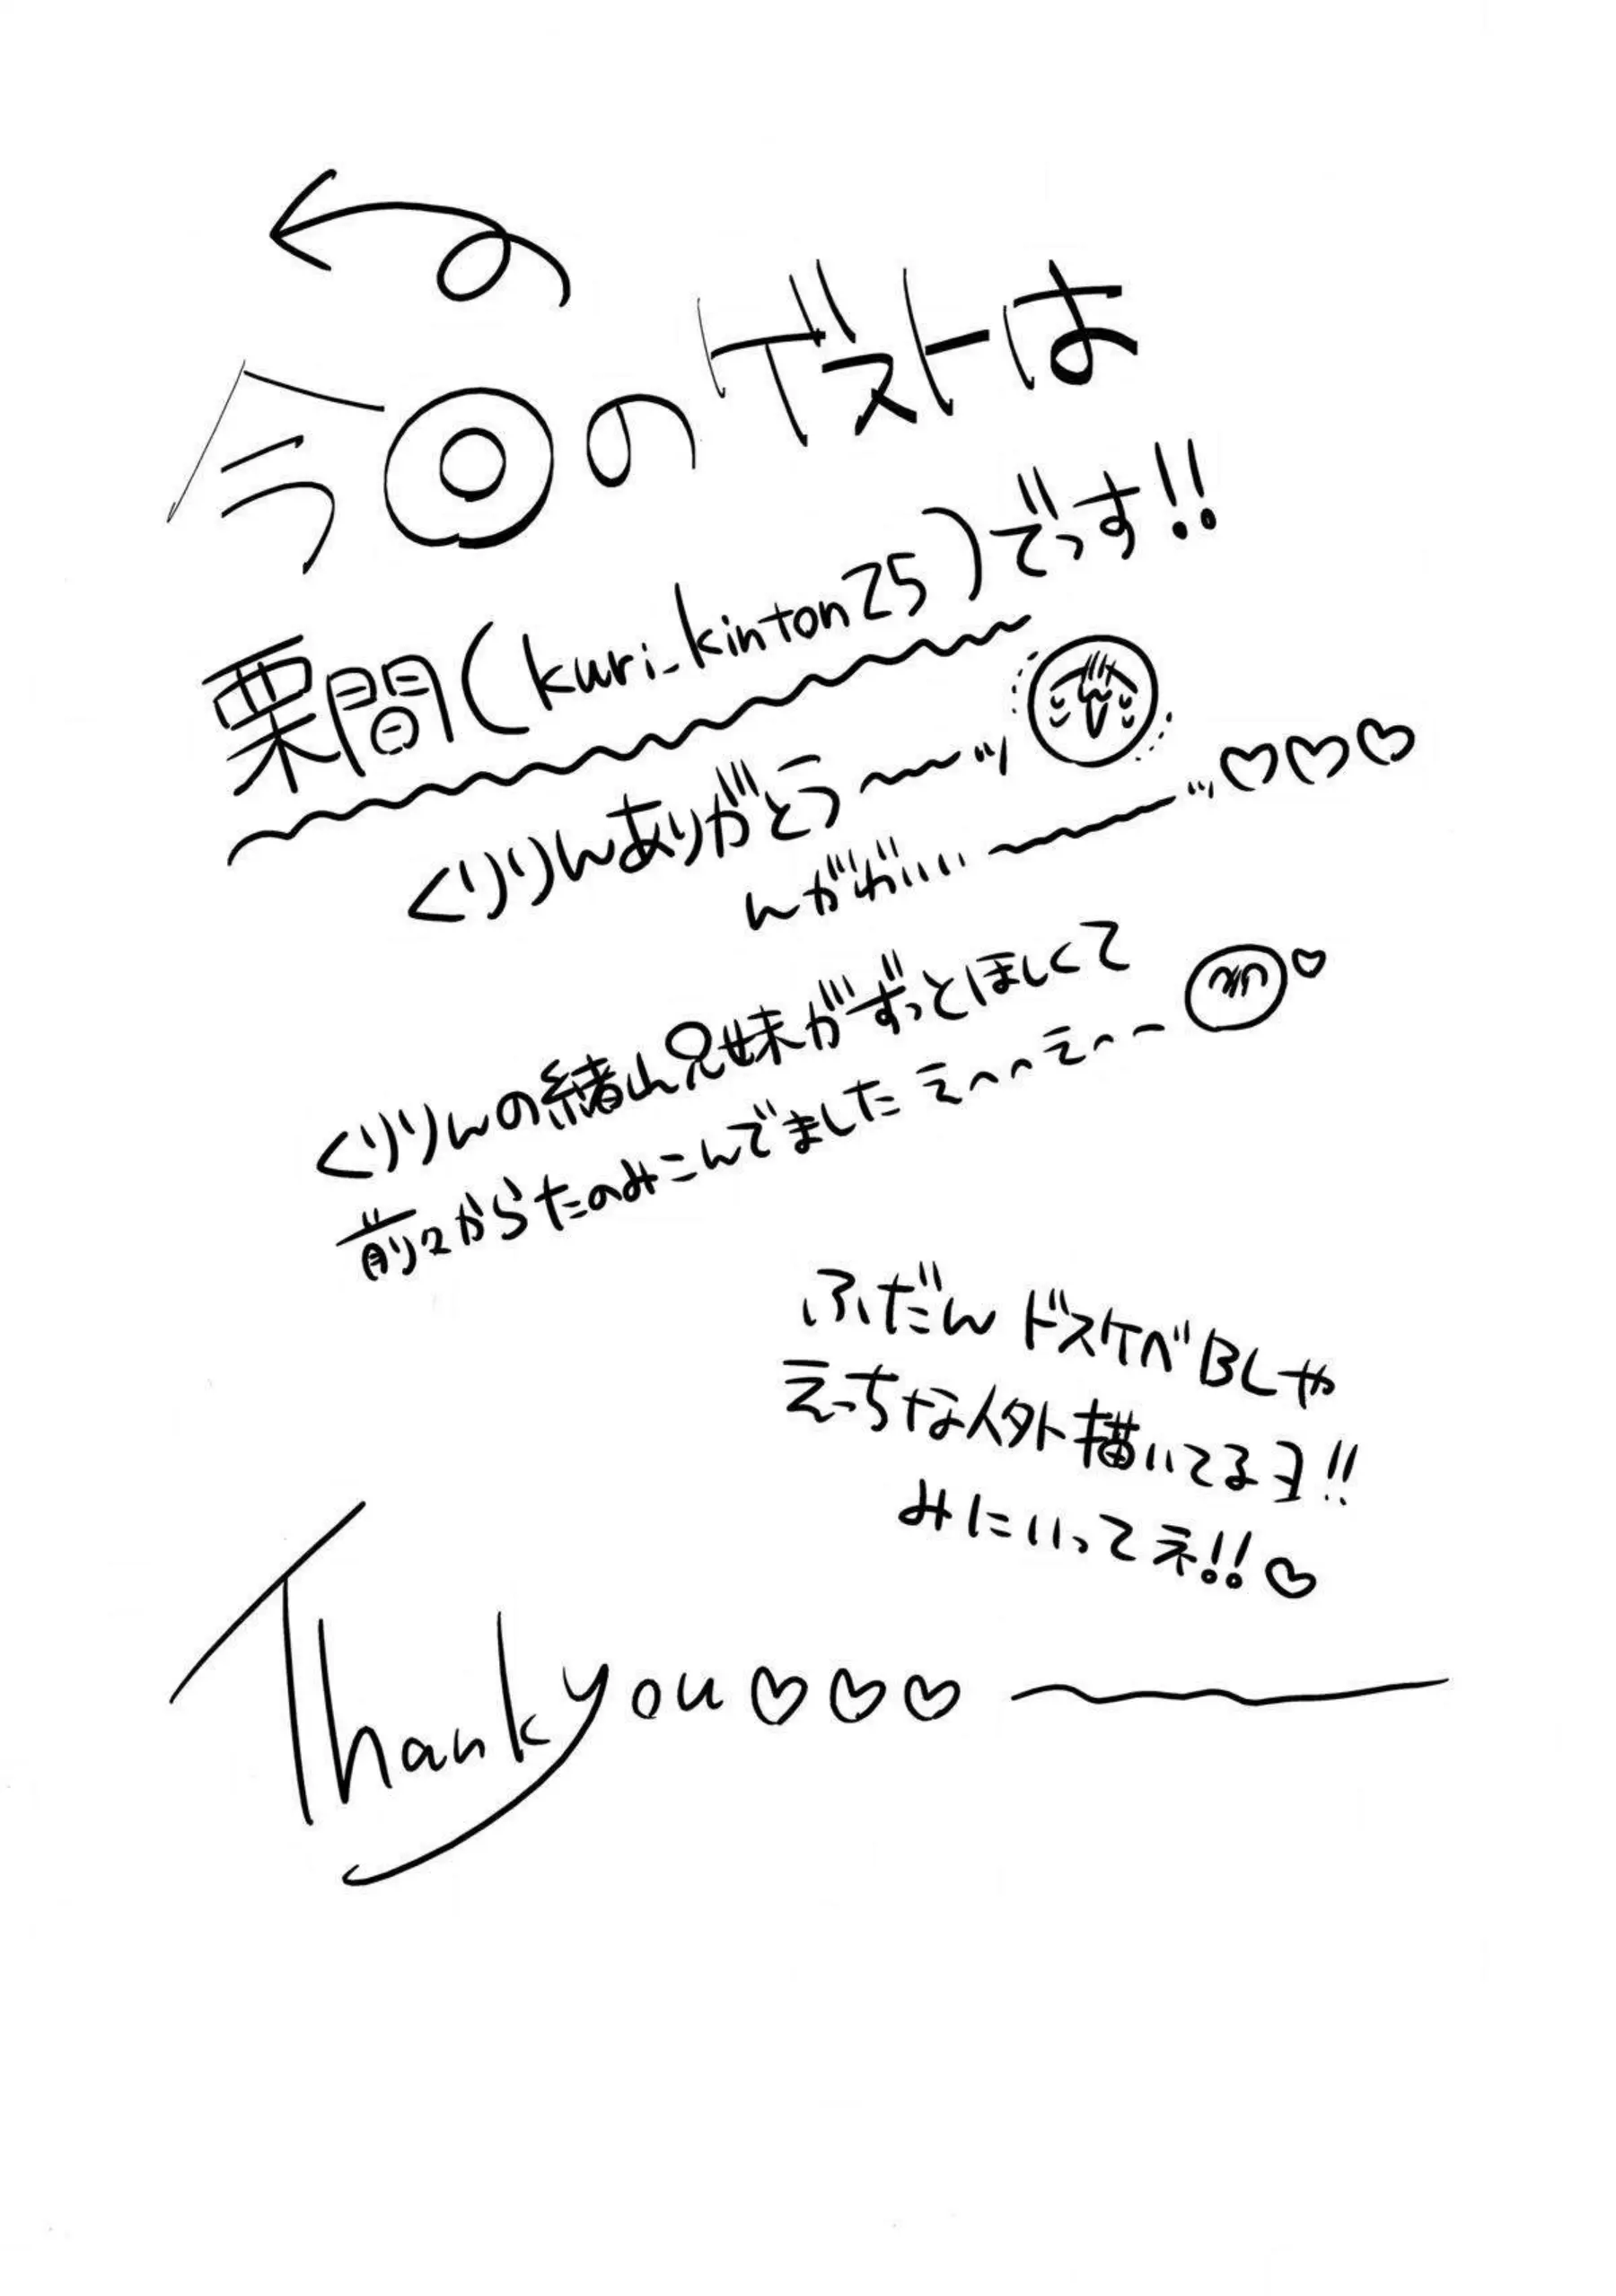 今回のゲストは
栗間(kuri_kinton25)でっす!!
くりりんありがとう〜〜ッ
んがわ゛いい〜〜〜ッ♡♡♡
くりりんの緒山兄妹がずっとほしくて
前々からたのみこんでましたえへへえへー♡
ふだんドスケベBLや
えっちな人外描いてるヨ!!
みにいってネ!!♡
Thank you♡♡♡